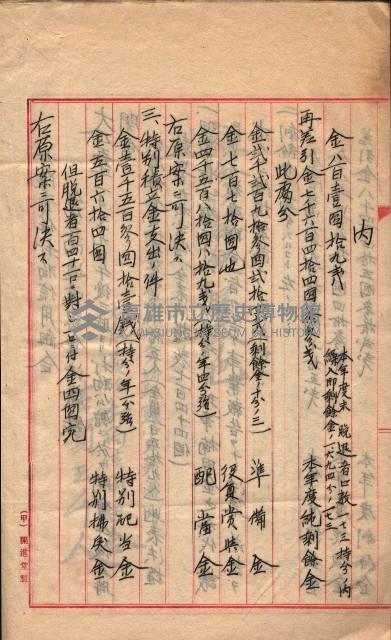 内
金八百壹圓拾九戔
本年度末脱退者口数一一三持分ノ内
再差引金七千六百四拾四圓
本年度純剰餘金
此處分
金貳千貳百九拾参圓貳拾
(剰餘金ノ十分ノ三)
準備金
金七百七拾圓也
役員賞与金
金四千五百八拾圓八拾九戔
(持分ノ年四分強)
配当金
右原案可決ス
三、特別積立金支出ノ件
金壹千五百
圓拾壹錢
(持分ノ年一分強)
特別配当金
金五百六拾四圓
特別拂戻金
但脱退者百四十一口ニ對シ一口ニ付金四圓宛
右原案可決ス
高雄市立歷史博物館
KAOHSIUNG MUSEUM OF HISTORY
(甲)開進堂製